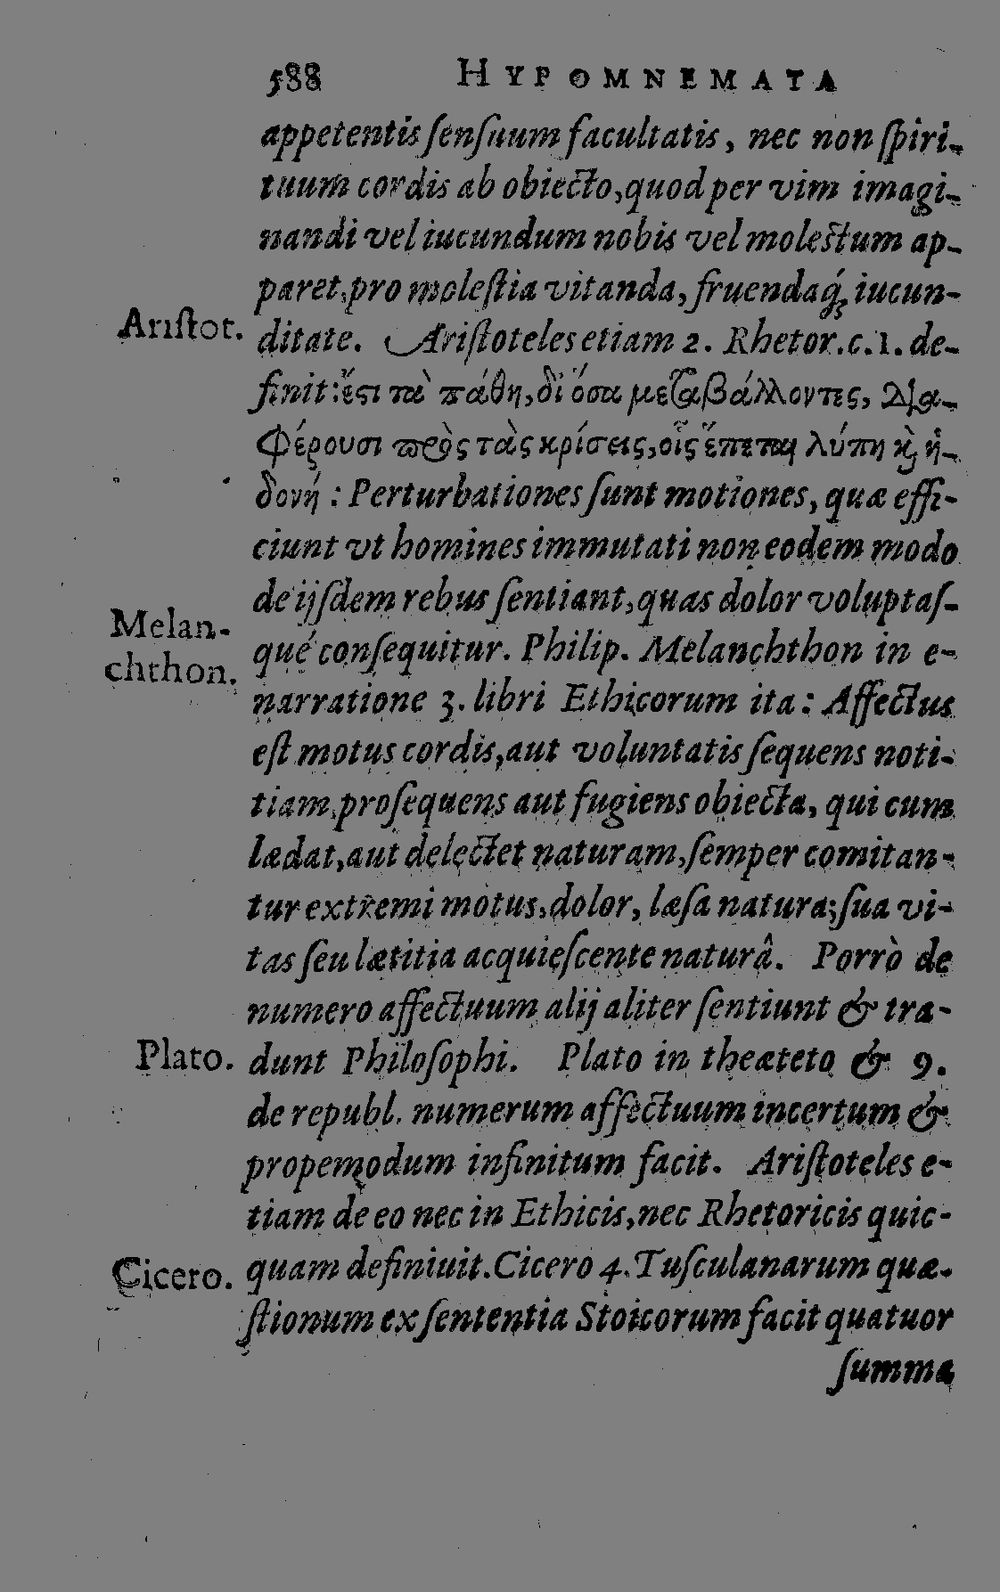 588 HYPOMNEMATA
appetentis ſenſuum facultatis, nec non ſpiri-
tuum cordis ab obiecto, quod per vim imagi-
nandi vel iucundum nobis vel molestum ap-
paret, pro moleſtia vitanda, fruendaq́; iucun-
Ariſtot. ditate. Ariſtoteles etiam 2. Rhetor. c. 1. de-
finit: ἔςι τὰ πάθη, δἰ ὅσα μεταβάλλοντες, δχα-
φέρουσι πρὸς τὰς κρίσεις, οἷς ἕπεται λύπη κὶ ἡ-
δονή : Perturbationes ſunt motiones, quæ effi-
ciunt vt homines immutati non eodem modo
de ijſdem rebus ſentiant, quas dolor voluptaſ-
Melan-
chthon. qué conſequitur. Philip. Melanchthon in e-
narratione 3. libri Ethicorum ita: Affectus
eſt motus cordis, aut voluntatis ſequens noti-
tiam, proſequens aut fugiens obiecta, qui cum
lædat, aut delectet naturam, ſemper comitan-
tur extremi motus, dolor, læſa natura; ſua vi-
tas ſeu lætitia acquieſcente naturâ. Porrò de
numero affectuum alij aliter ſentiunt & tra-
Plato. dunt Philoſophi. Plato in theæteto & 9.
de republ. numerum affectuum incertum &
propemodum infinitum facit. Ariſtoteles e-
tiam de eo nec in Ethicis, nec Rhetoricis quic-
Cicero. quam definiuit. Cicero 4. Tuſculanarum quæ-
ſtionum ex ſententia Stoicorum facit quatuor
ſumma